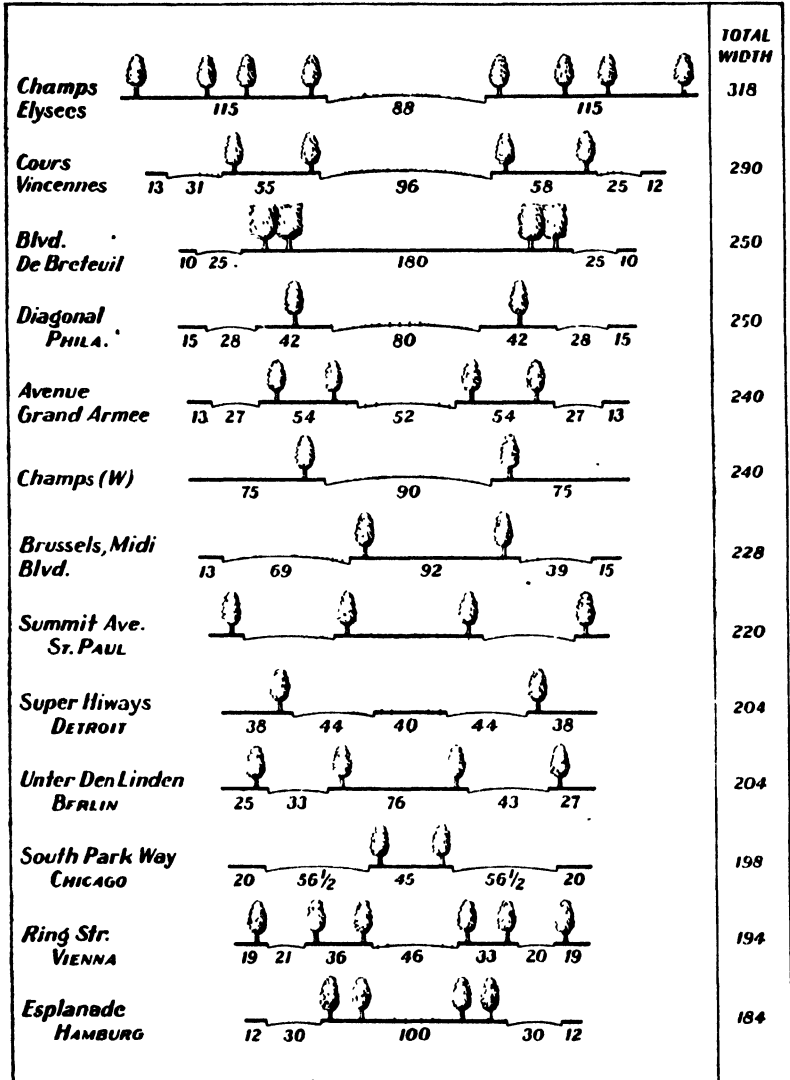 TOTAL
WIDTH
Champs
Elysees
115 88 115
318
Cours
Vincennes
13 31 55 96 58 25 12
290
Blvd.
De Breteuil
10 25 180 25 10
250
Diagonal
PHILA.
15 28 42 80 42 28 15
250
Avenue
Grand Armee
13 27 54 52 54 27 13
240
Champs (W)
75 90 75
240
Brussels, Midi
Blvd.
13 69 92 39 15
228
Summit Ave.
ST. PAUL
220
Super Hiways
DETROIT
38 44 40 44 38
204
Unter Den Linden
BERLIN
25 33 76 43 27
204
South Park Way
CHICAGO
20 56 1/2 45 56 1/2 20
198
Ring Str.
VIENNA
19 21 36 46 33 20 19
194
Esplanade
HAMBURG
12 30 100 30 12
184